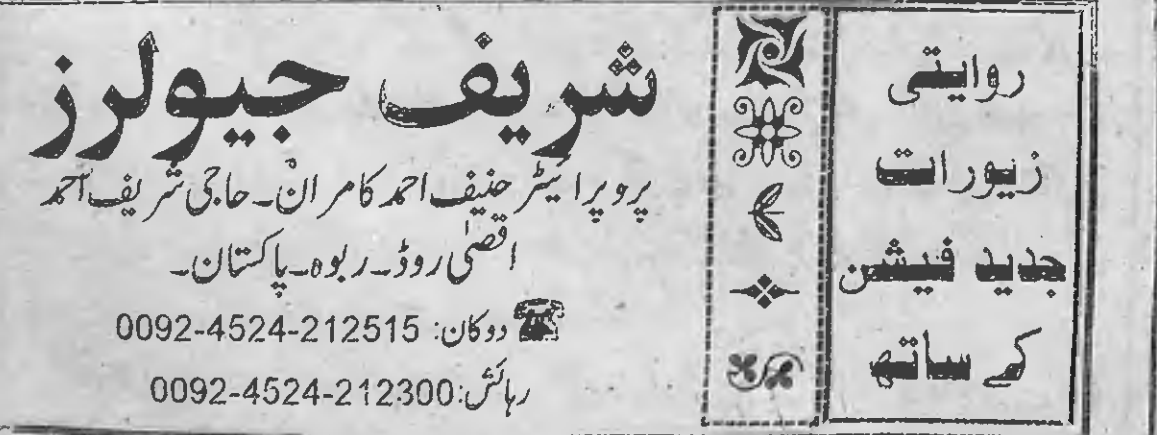 روایتی
زیورات
جدید فیشن
کے ساتھ
شریف جیولرز
پروپرائیٹر حنیف احمد کامران۔ حاجی شریف احمد
اقصٰی روڈ۔ ربوہ۔ پاکستان۔
دوکان: 0092-4524-212515
رہائش: 0092-4524-212300